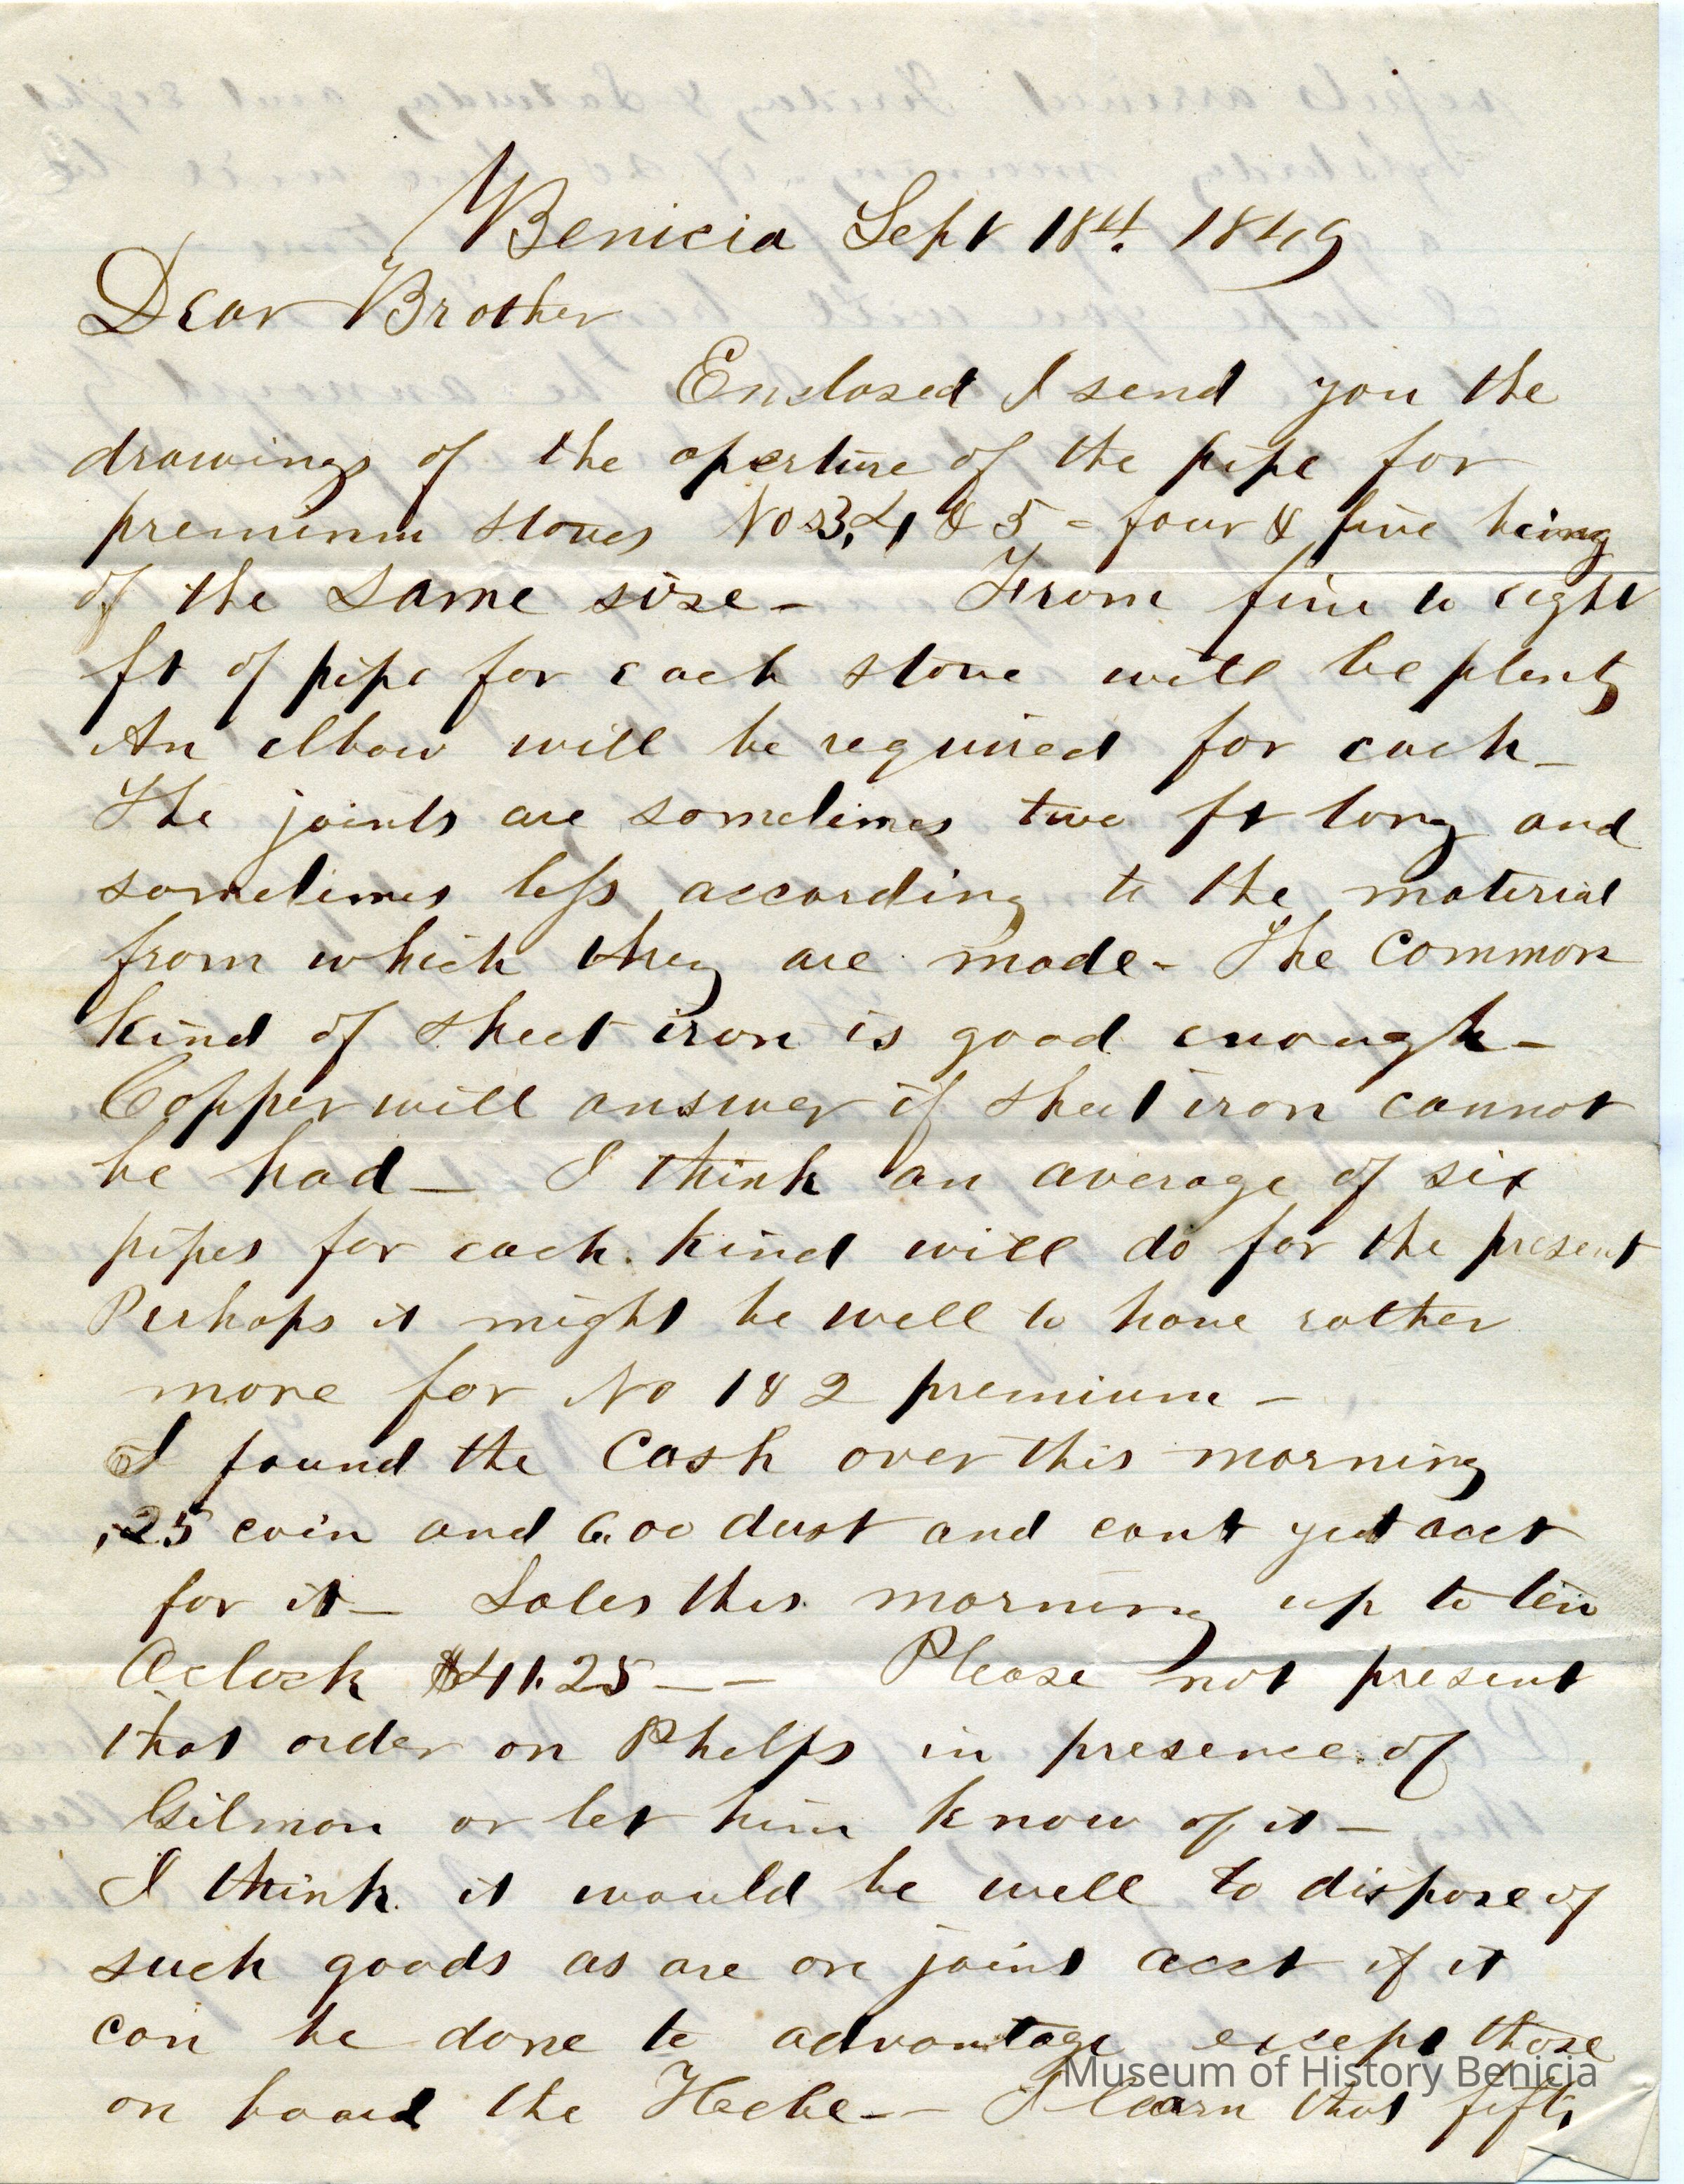 Benicia Sept 18th. 1849
Dear Brother
Enclosed I send you the
drawings of the aperture of the pipe for
premium stoves Nos 3, 4 & 5 - four & five being
of the same size - From five to eight
ft of pipe for each stove will be plenty
An elbow will be required for each -
The joints are sometimes two ft long and
sometimes less according to the material
from which they are made - The Common
kind of sheet iron is good enough -
Copper will answer if sheet iron cannot
be had - I think an average of six
pipes for each kind will do for the present
Perhaps it might be well to have rather
more for No 1 & 2 premium -
I found the Cash over this morning
,25 coin and 6.00 dust and cant yet acct
for it - Sales this morning up to ten
Oclock $41.25 - - Please not present
that order on Phelps in presence of
Gilman or let him know of it -
I think it would be well to dispose of
such goods as are on joint acct if it
can be done to advantage except those
on board the Heebe - - I learn that fifty
Museum of History Benicia